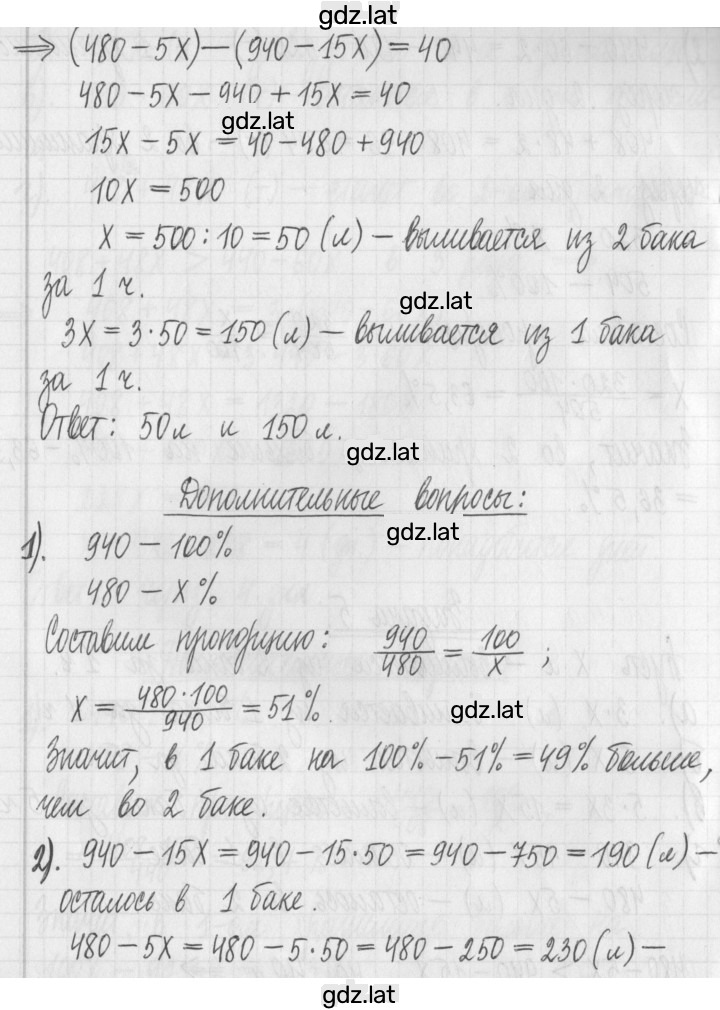 gdz.lat
⇒ (480 – 5x) – (940 – 15x) = 40
480 – 5x – 940 + 15x = 40
gdz.lat
15x – 5x = 40 – 480 + 940
10x = 500
x = 500 : 10 = 50 (л) – выливается из 2 бака
за 1 ч.
gdz.lat
3x = 3·50 = 150 (л) – выливается из 1 бака
за 1 ч.
Ответ: 50 л и 150 л.
gdz.lat
Дополнительные вопросы:
gdz.lat
1). 940 – 100%
480 – x%
Составим пропорцию: 940/480 = 100/x ;
x = 480·100/940 = 51%.
gdz.lat
Значит, в 1 баке на 100% – 51% = 49% больше,
чем во 2 баке.
2). 940 – 15x = 940 – 15·50 = 940 – 750 = 190 (л) –
осталось в 1 баке.
480 – 5x = 480 – 5·50 = 480 – 250 = 230 (л) –
gdz.lat